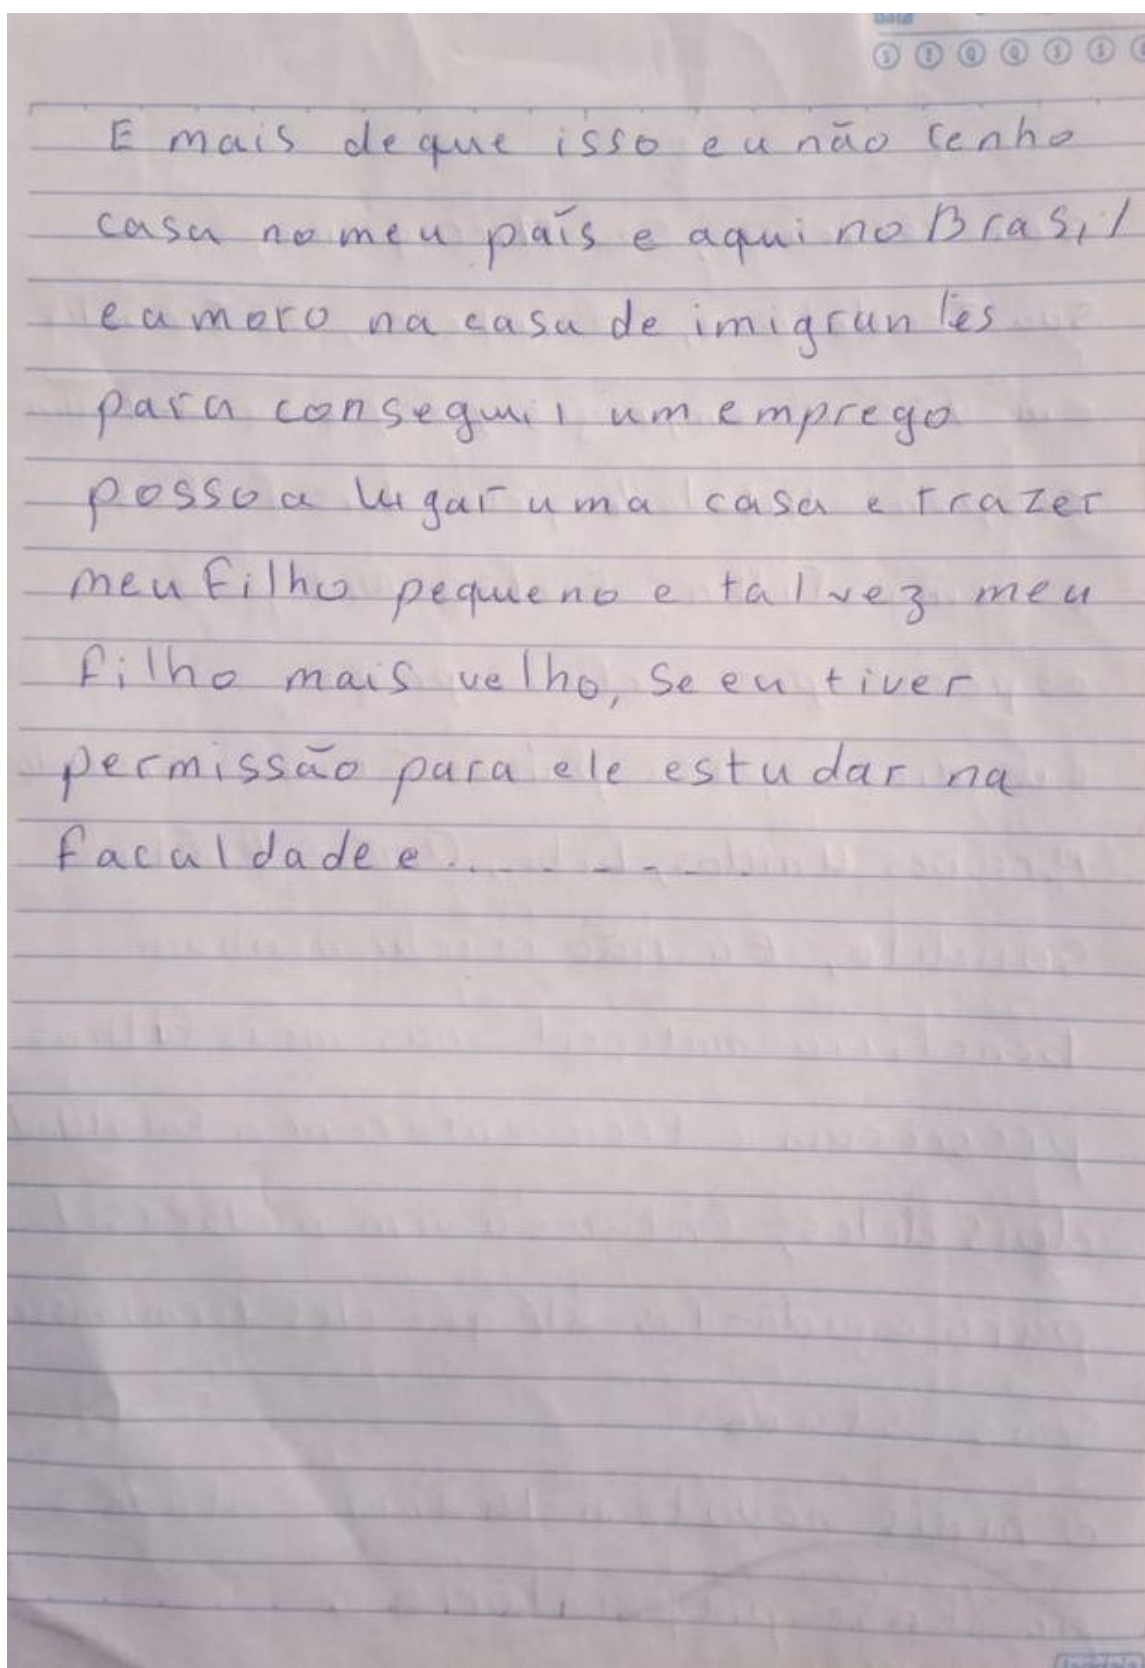 Data
S T Q Q S S
E mais de que isso eu não tenho
casa no meu país e aqui no Brasil
eu moro na casa de imigrantes
para conseguir um emprego
posso a lugar uma casa e trazer
meu filho pequeno e talvez meu
filho mais velho, se eu tiver
permissão para ele estudar na
faculdade e . . - - - - . . .